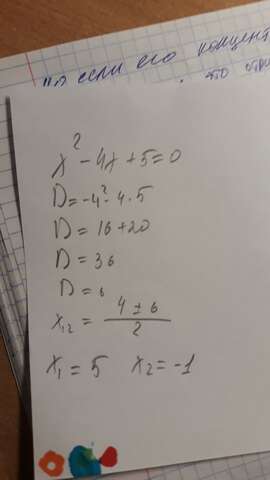 если его концент
это
x² - 4x + 5 = 0
D = -4² - 4 · 5
D = 16 + 20
D = 36
D = 6
x₁₂ = (4 ± 6) / 2
x₁ = 5 x₂ = -1